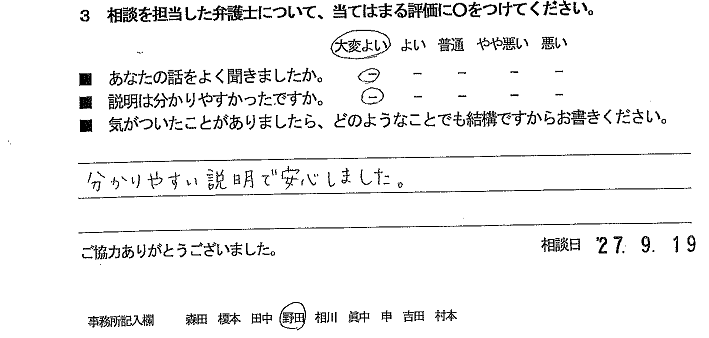 3 相談を担当した弁護士について、当てはまる評価に〇をつけてください。
大変よい よい 普通 やや悪い 悪い
■ あなたの話をよく聞きましたか。 － － － － －
■ 説明は分かりやすかったですか。 － － － － －
■ 気がついたことがありましたら、どのようなことでも結構ですからお書きください。
分かりやすい説明で安心しました。
ご協力ありがとうございました。 相談日 '27. 9. 19
事務所記入欄 森田 榎本 田中 野田 相川 眞中 申 吉田 村本